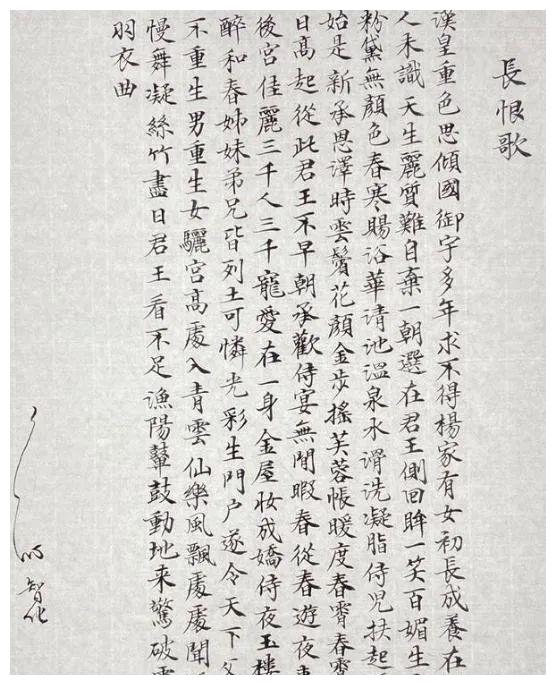 長恨歌
漢皇重色思傾國御宇多年求不得楊家有女初長成養在
人未識天生麗質難自棄一朝選在君王側回眸一笑百媚生
粉黛無顏色春寒賜浴華清池溫泉水滑洗凝脂侍兒扶起
始是新承恩澤時雲鬢花顏金步搖芙蓉帳暖度春宵春宵
日高起從此君王不早朝承歡侍宴無閒暇春從春遊夜
後宮佳麗三千人三千寵愛在一身金屋妝成嬌侍夜玉樓
醉和春姊妹弟兄皆列土可憐光彩生門户遂令天下父
不重生男重生女驪宮高處入青雲仙樂風飄處處聞
慢舞凝絲竹盡日君王看不足漁陽鼙鼓動地来驚破
羽衣曲
智化